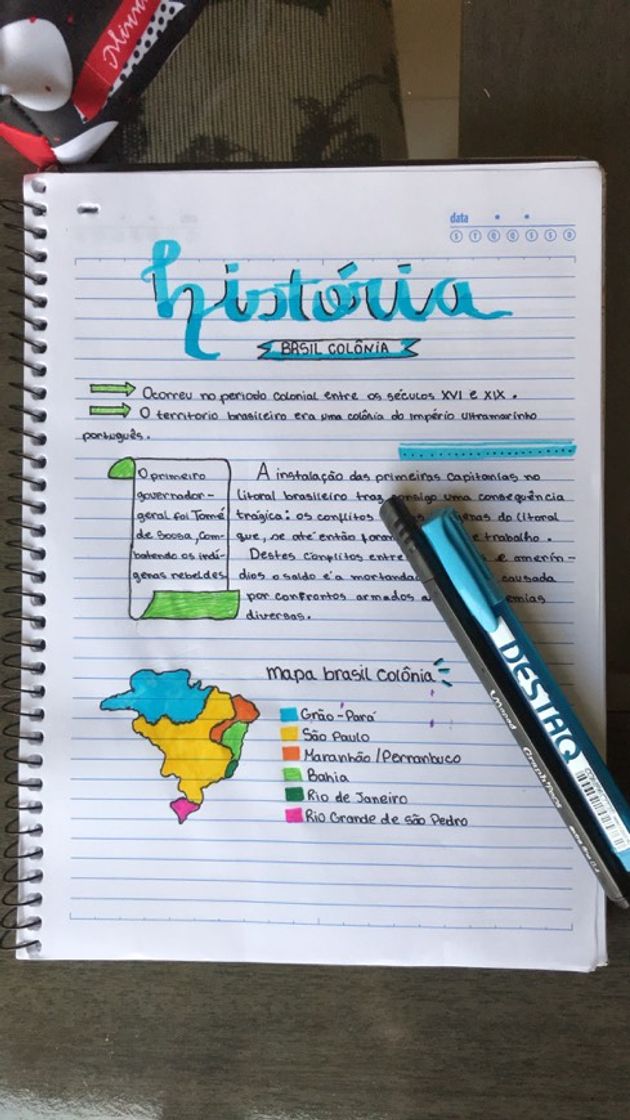 Minni
data
S T Q Q S S D
história
BRSIL COLÔNIA
Ocorreu no período colonial entre os séculos XVI e XIX.
O territorio brasileiro era uma colônia do Império Ultramarinho
português.
O primeiro
governador-
geral foi Tomé
de Sousa, com-
batendo os indí-
genas rebeldes
A instalação das primeiras capitanias no
litoral brasileiro traz consigo uma consequência
trágica: os conflitos genas do litoral
que, se até então foram e trabalho.
Destes conflitos entre e amerín-
dios o saldo é a mortandad causada
por confrontos armados a emias
diversas.
mapa brasil colônia
Grão-Pará
São Paulo
Maranhão/Pernambuco
Bahia
Rio de Janeiro
Rio Grande de São Pedro
DESTAQ